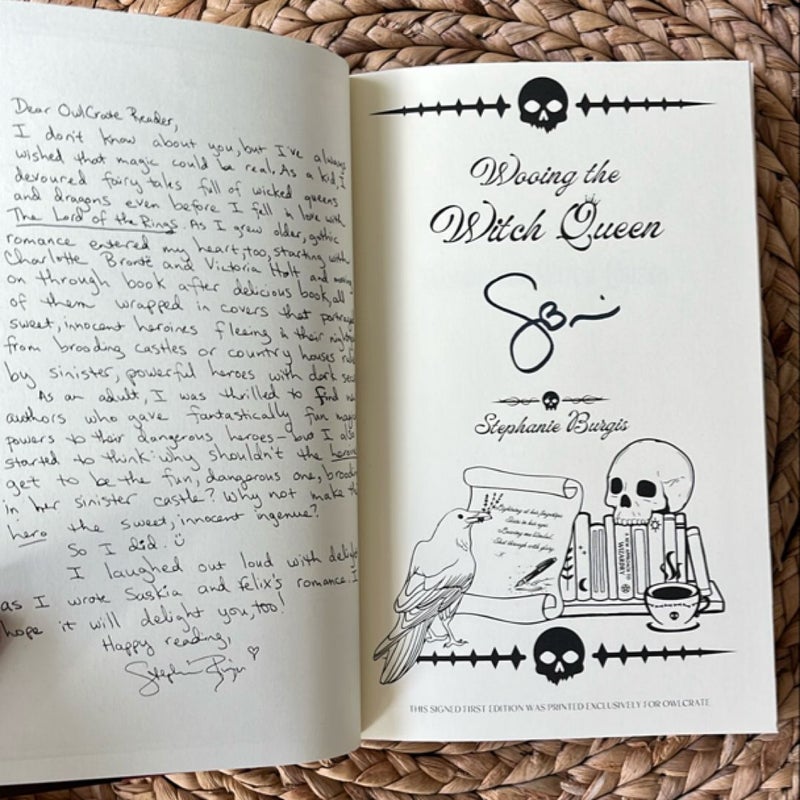 Dear OwlCrate Reader,
I don't know about you, but I've always
wished that magic could be real. As a kid, I
devoured fairy tales full of wicked queens
and dragons even before I fell in love with
The Lord of the Rings. As I grew older, gothic
romance entered my heart, too, starting with
Charlotte Brontë and Victoria Holt and moving
on through book after delicious book, all
of them wrapped in covers that portray
sweet, innocent heroines fleeing in their
from brooding castles or country houses
by sinister, powerful heroes with dark
As an adult, I was thrilled to find
authors who gave fantastically fun
powers to their dangerous heroes - but I also
started to think: why shouldn't the heroine
get to be the fun, dangerous one,
in her sinister castle? Why not make the
hero the sweet, innocent ingenue?
So I did.
I laughed out loud with delight
as I wrote Saskia and Felix's romance. I
hope it will delight you, too!
Happy reading,
Wooing the
Witch Queen
Stephanie Burgis
Lightning at her fingertips
WIZARDRY
THIS SIGNED FIRST EDITION WAS PRINTED EXCLUSIVELY FOR OWLCRATE